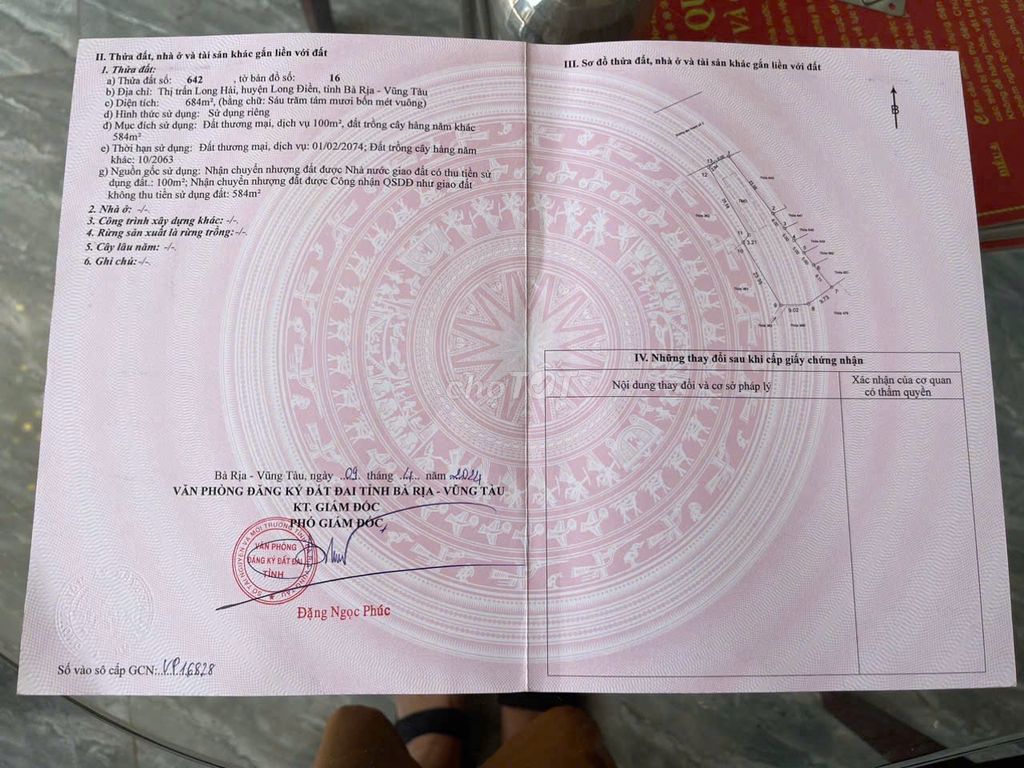 II. Thửa đất, nhà ở và tài sản khác gắn liền với đất
1. Thửa đất:
a) Thửa đất số: 642 , tờ bản đồ số: 16
b) Địa chỉ: Thị trấn Long Hải, huyện Long Điền, tỉnh Bà Rịa - Vũng Tàu
c) Diện tích: 684m², (bằng chữ: Sáu trăm tám mươi bốn mét vuông)
d) Hình thức sử dụng: Sử dụng riêng
đ) Mục đích sử dụng: Đất thương mại, dịch vụ 100m², đất trồng cây hàng năm khác
584m²
e) Thời hạn sử dụng: Đất thương mại, dịch vụ: 01/02/2074; Đất trồng cây hàng năm
khác: 10/2063
g) Nguồn gốc sử dụng: Nhận chuyển nhượng đất được Nhà nước giao đất có thu tiền sử
dụng đất.: 100m²; Nhận chuyển nhượng đất được Công nhận QSDĐ như giao đất
không thu tiền sử dụng đất: 584m²
2. Nhà ở: -/-
3. Công trình xây dựng khác: -/-
4. Rừng sản xuất là rừng trồng: -/-
5. Cây lâu năm: -/-
6. Ghi chú: -/-
Bà Rịa - Vũng Tàu, ngày ..09.. tháng ..4.. năm 2024
VĂN PHÒNG ĐĂNG KÝ ĐẤT ĐAI TỈNH BÀ RỊA - VŨNG TÀU
KT. GIÁM ĐỐC
PHÓ GIÁM ĐỐC
VĂN PHÒNG
ĐĂNG KÝ ĐẤT ĐAI
TỈNH
Đặng Ngọc Phúc
Số vào sổ cấp GCN: VP16828
III. Sơ đồ thửa đất, nhà ở và tài sản khác gắn liền với đất
B
13
12
11
3.21
10
9
9.02
8
9.73
7
IV. Những thay đổi sau khi cấp giấy chứng nhận
Nội dung thay đổi và cơ sở pháp lý
Xác nhận của cơ quan
có thẩm quyền
chợTỐT